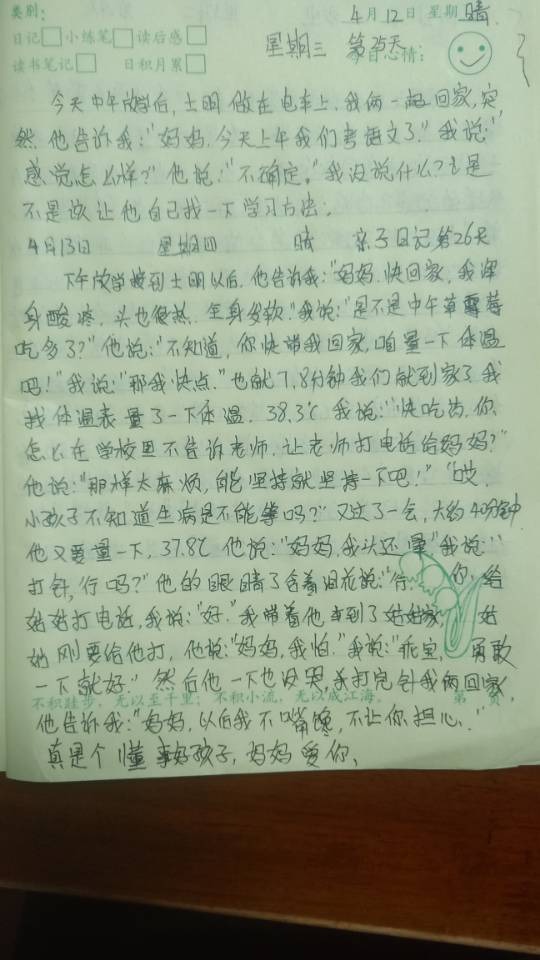 类别： 4月12日 星期 晴
日记 小练笔 读后感 星期三 第25天 今日心情：
读书笔记 日积月累
今天中午放学后，士明做在电车上，我俩一起回家，突
然他告诉我："妈妈，今天上午我们考语文了。"我说："
感觉怎么样？"他说："不确定。"我没说什么？主是
不是该让他自己找一下学习方法。
4月13日 星期四 晴 亲子日记第26天
下午放学接到士明以后，他告诉我："妈妈，快回家，我浑
身酸疼，头也很热，全身发软。"我说："是不是中午草莓
吃多了？"他说："不知道，你快带我回家，咱量一下体温
吧！"我说："那我快点。"也就7,8分钟我们就到家了，我
找体温表量了一下体温，38.3℃我说："快吃药，你
怎么在学校里不告诉老师，让老师打电话给妈妈？"
他说："那样太麻烦，能坚持就坚持一下吧！""哎，
小孩子不知道生病是不能等吗？"又过了一会，大约40分钟
他又要量一下，37.8℃他说："妈妈，我头还晕"我说："
打针，行吗？"他的眼睛了含着泪花说："行，你给
姑姑打电话，我说："好。"我带着他来到了姑姑家，姑
姑刚要给他打，他说："妈妈，我怕。"我说："乖宝，勇敢
一下就好。"然后他一下也没哭，打完针我俩回家
不积跬步，无以至千里；不积小流，无以成江海。 第 页
他告诉我："妈妈，以后我不嘴馋，不让你担心。"
真是个懂事好孩子，妈妈爱你、